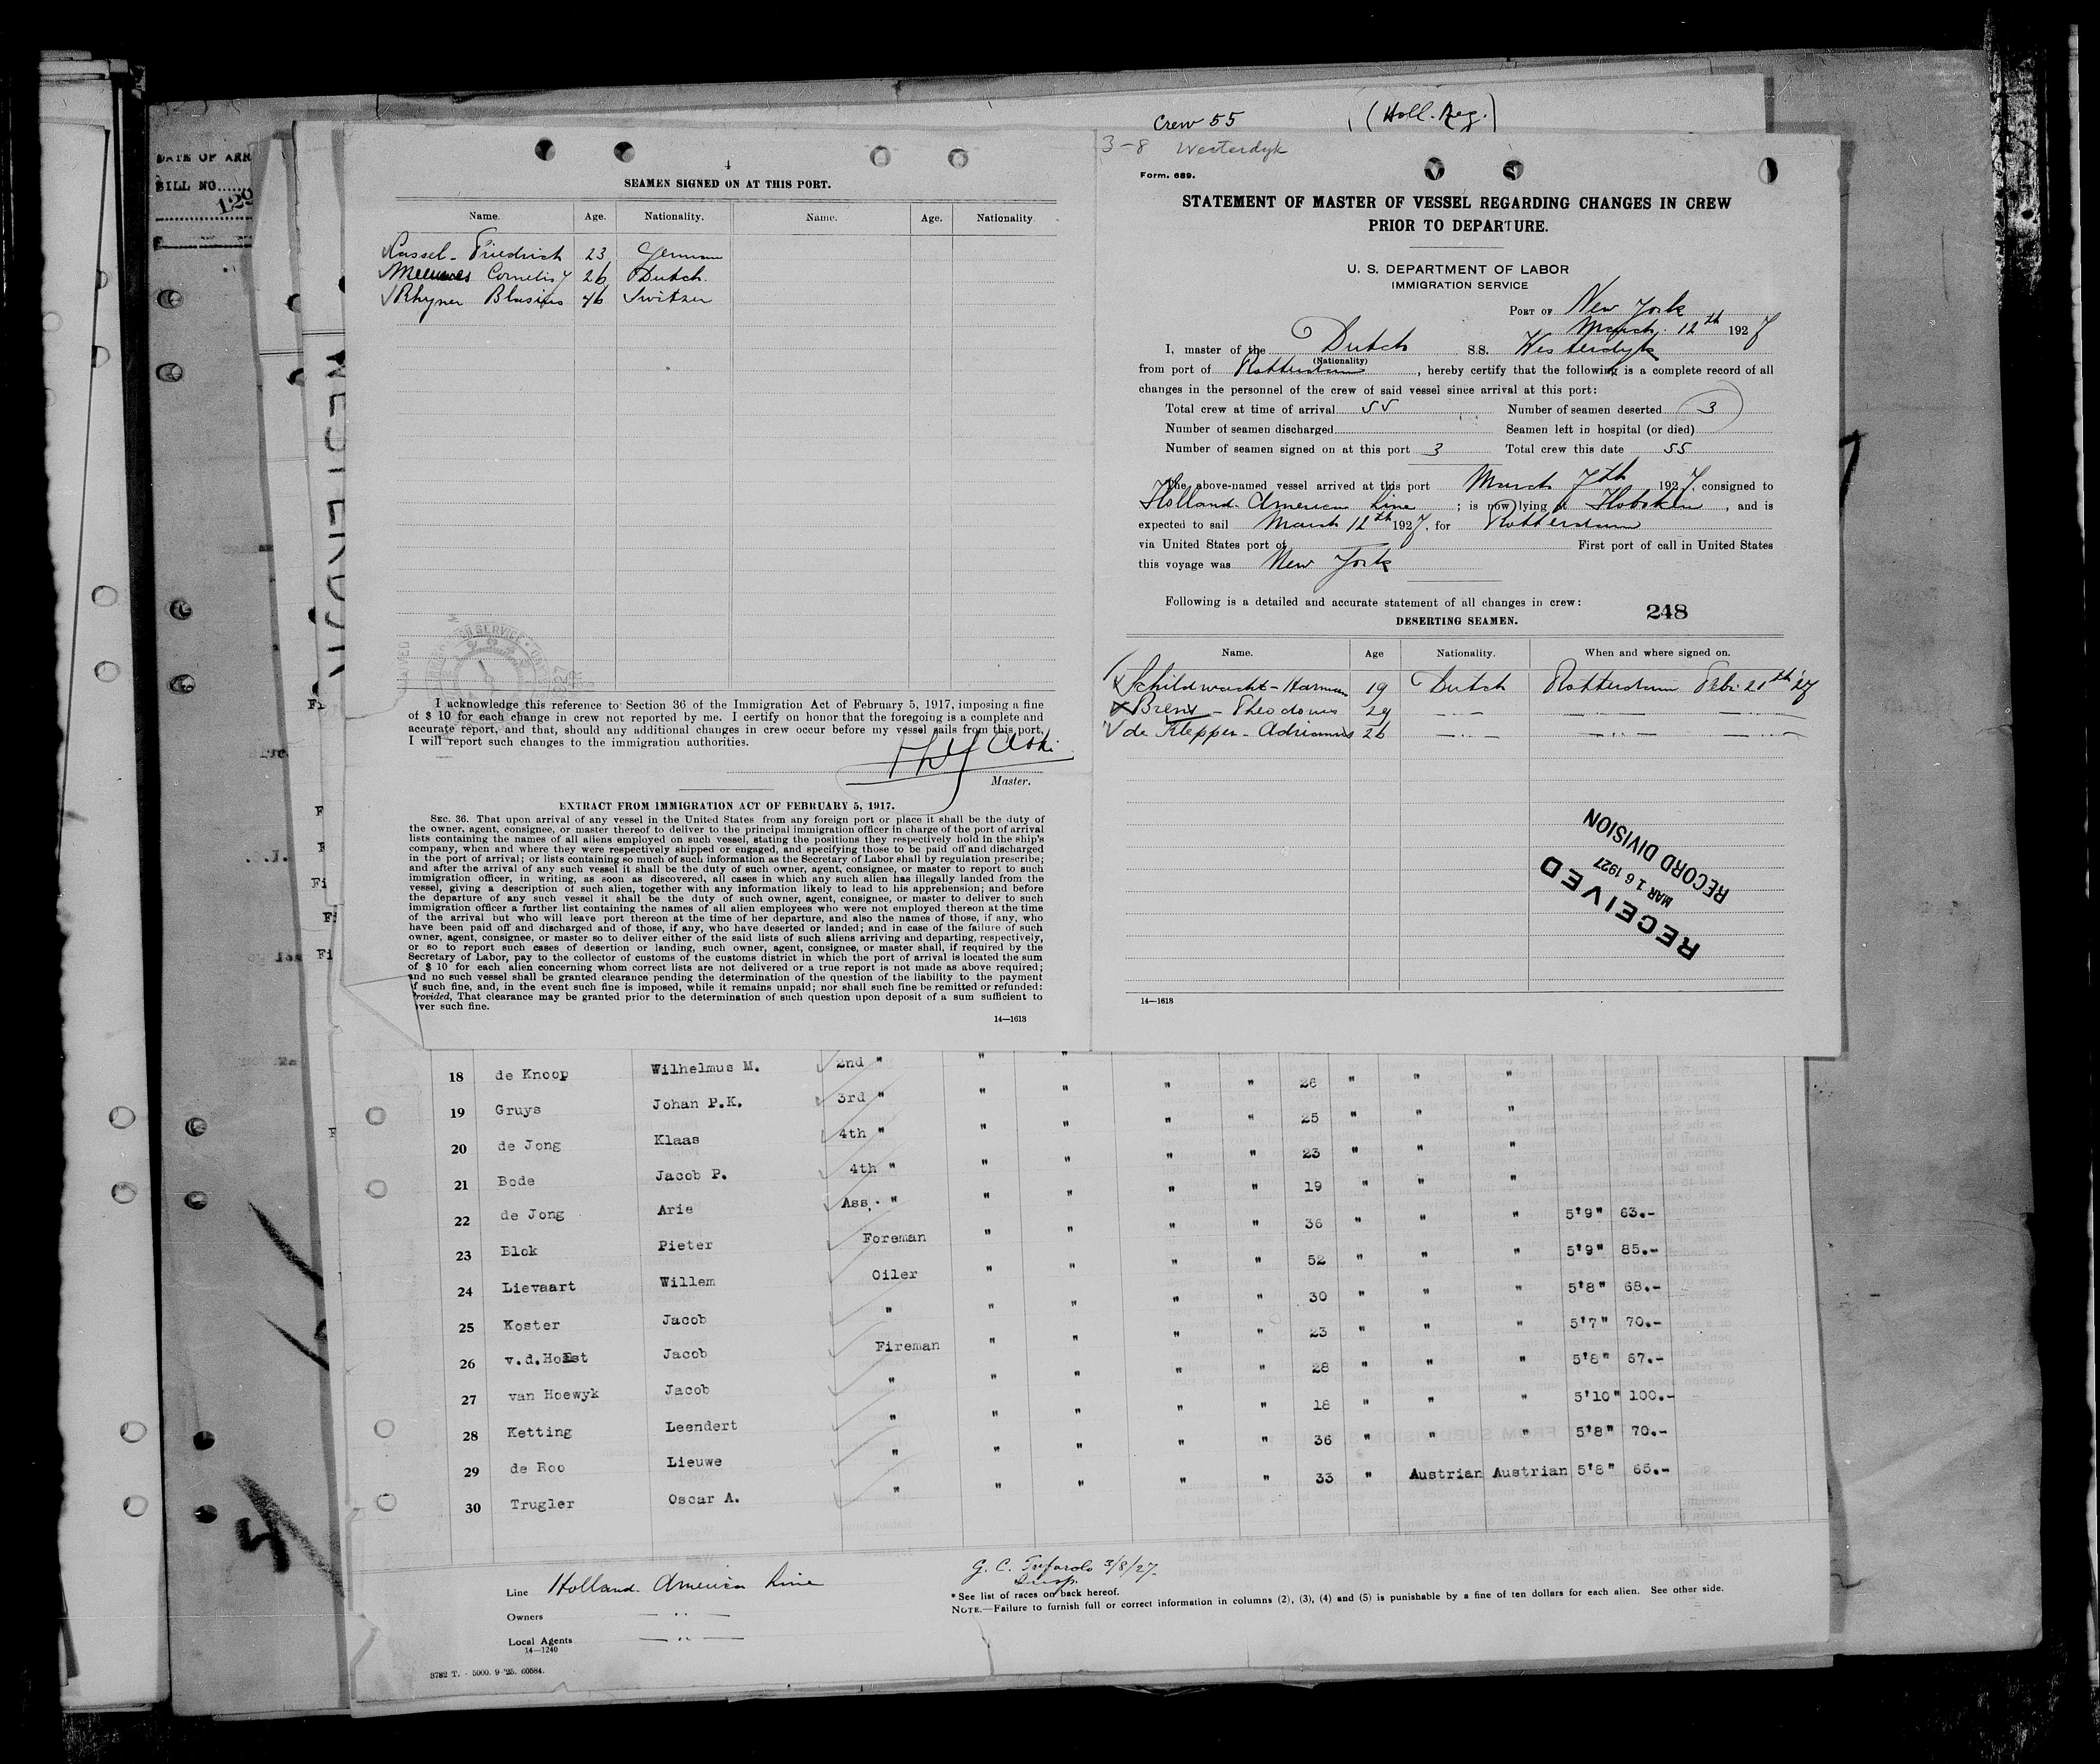 Crew 55 (Holl. Reg.)
DATE OF ARR
BILL NO.
129
4
SEAMEN SIGNED ON AT THIS PORT.
Name. Age. Nationality. Name. Age. Nationality.
Kassel - Friedrich 23 German
Meeuwes Cornelis 26 Dutch.
Rhyner Blasius 46 Switzer
I acknowledge this reference to Section 36 of the Immigration Act of February 5, 1917, imposing a fine
of $ 10 for each change in crew not reported by me. I certify on honor that the foregoing is a complete and
accurate report, and that, should any additional changes in crew occur before my vessel sails from this port,
I will report such changes to the immigration authorities.
Master.
EXTRACT FROM IMMIGRATION ACT OF FEBRUARY 5, 1917.
SEC. 36. That upon arrival of any vessel in the United States from any foreign port or place it shall be the duty of
the owner, agent, consignee, or master thereof to deliver to the principal immigration officer in charge of the port of arrival
lists containing the names of all aliens employed on such vessel, stating the positions they respectively hold in the ship's
company, when and where they were respectively shipped or engaged, and specifying those to be paid off and discharged
in the port of arrival; or lists containing so much of such information as the Secretary of Labor shall by regulation prescribe;
and after the arrival of any such vessel it shall be the duty of such owner, agent, consignee, or master to report to such
immigration officer, in writing, as soon as discovered, all cases in which any such alien has illegally landed from the
vessel, giving a description of such alien, together with any information likely to lead to his apprehension; and before
the departure of any such vessel it shall be the duty of such owner, agent, consignee, or master to deliver to such
immigration officer a further list containing the names of all alien employees who were not employed thereon at the time
of the arrival but who will leave port thereon at the time of her departure, and also the names of those, if any, who
have been paid off and discharged and of those, if any, who have deserted or landed; and in case of the failure of such
owner, agent, consignee, or master so to deliver either of the said lists of such aliens arriving and departing, respectively,
or so to report such cases of desertion or landing, such owner, agent, consignee, or master shall, if required by the
Secretary of Labor, pay to the collector of customs of the customs district in which the port of arrival is located the sum
of $ 10 for each alien concerning whom correct lists are not delivered or a true report is not made as above required;
and no such vessel shall be granted clearance pending the determination of the question of the liability to the payment
f such fine, and, in the event such fine is imposed, while it remains unpaid; nor shall such fine be remitted or refunded:
rovided, That clearance may be granted prior to the determination of such question upon deposit of a sum sufficient to
ver such fine.
14—1618
3-8 Westerdyk
Form. 689.
STATEMENT OF MASTER OF VESSEL REGARDING CHANGES IN CREW
PRIOR TO DEPARTURE.
U. S. DEPARTMENT OF LABOR
IMMIGRATION SERVICE
PORT OF New York
March 12th 1927
I, master of the Dutch S.S. Westerdyk
(Nationality)
from port of Rotterdam, hereby certify that the following is a complete record of all
changes in the personnel of the crew of said vessel since arrival at this port:
Total crew at time of arrival 55 Number of seamen deserted 3
Number of seamen discharged Seamen left in hospital (or died)
Number of seamen signed on at this port 3 Total crew this date 55
The above-named vessel arrived at this port March 7th 1927, consigned to
Holland-America Line; is now lying at Hoboken, and is
expected to sail March 12th 1927, for Rotterdam
via United States port of First port of call in United States
this voyage was New York
Following is a detailed and accurate statement of all changes in crew:
248
DESERTING SEAMEN.
Name. Age Nationality. When and where signed on.
Schildwacht - Harman 19 Dutch Rotterdam Feb. 21th '27
Brens - Theodorus 29 — " — — " — — " —
de Klepper - Adrianus 26 — " — — " — — " —
RECEIVED
MAR 16 1927
RECORD DIVISION
14—1618
18 de Knoop Wilhelmus M. 2nd " " " " " 26 " " "
19 Gruys Johan P.K. 3rd " " " " " 25 " " "
20 de Jong Klaas 4th " " " " " 23 " " "
21 Bode Jacob P. 4th " " " " " 19 " " "
22 de Jong Arie Ass. " " " " " 36 " " " 5'9" 63.-
23 Blok Pieter Foreman " " " " 52 " " " 5'9" 85.-
24 Lievaart Willem Oiler " " " " 30 " " " 5'8" 68.-
25 Koster Jacob " " " " " 23 " " " 5'7" 70.-
26 v.d.Horst Jacob Fireman " " " " 28 " " " 5'8" 67.-
27 van Hoewyk Jacob " " " " " 18 " " " 5'10" 100.-
28 Ketting Leendert " " " " " 36 " " " 5'8" 70.-
29 de Roo Lieuwe " " " " " 33 " Austrian Austrian 5'8" 65.-
30 Trugler Oscar A. " " "
Line Holland-America Line
Owners — " —
Local Agents — " —
14—1240
3782 T. - 5000. 9-'25. 60584.
G. C. 3/8/27.
Insp.
* See list of races on back hereof.
NOTE.—Failure to furnish full or correct information in columns (2), (3), (4) and (5) is punishable by a fine of ten dollars for each alien. See other side.
4